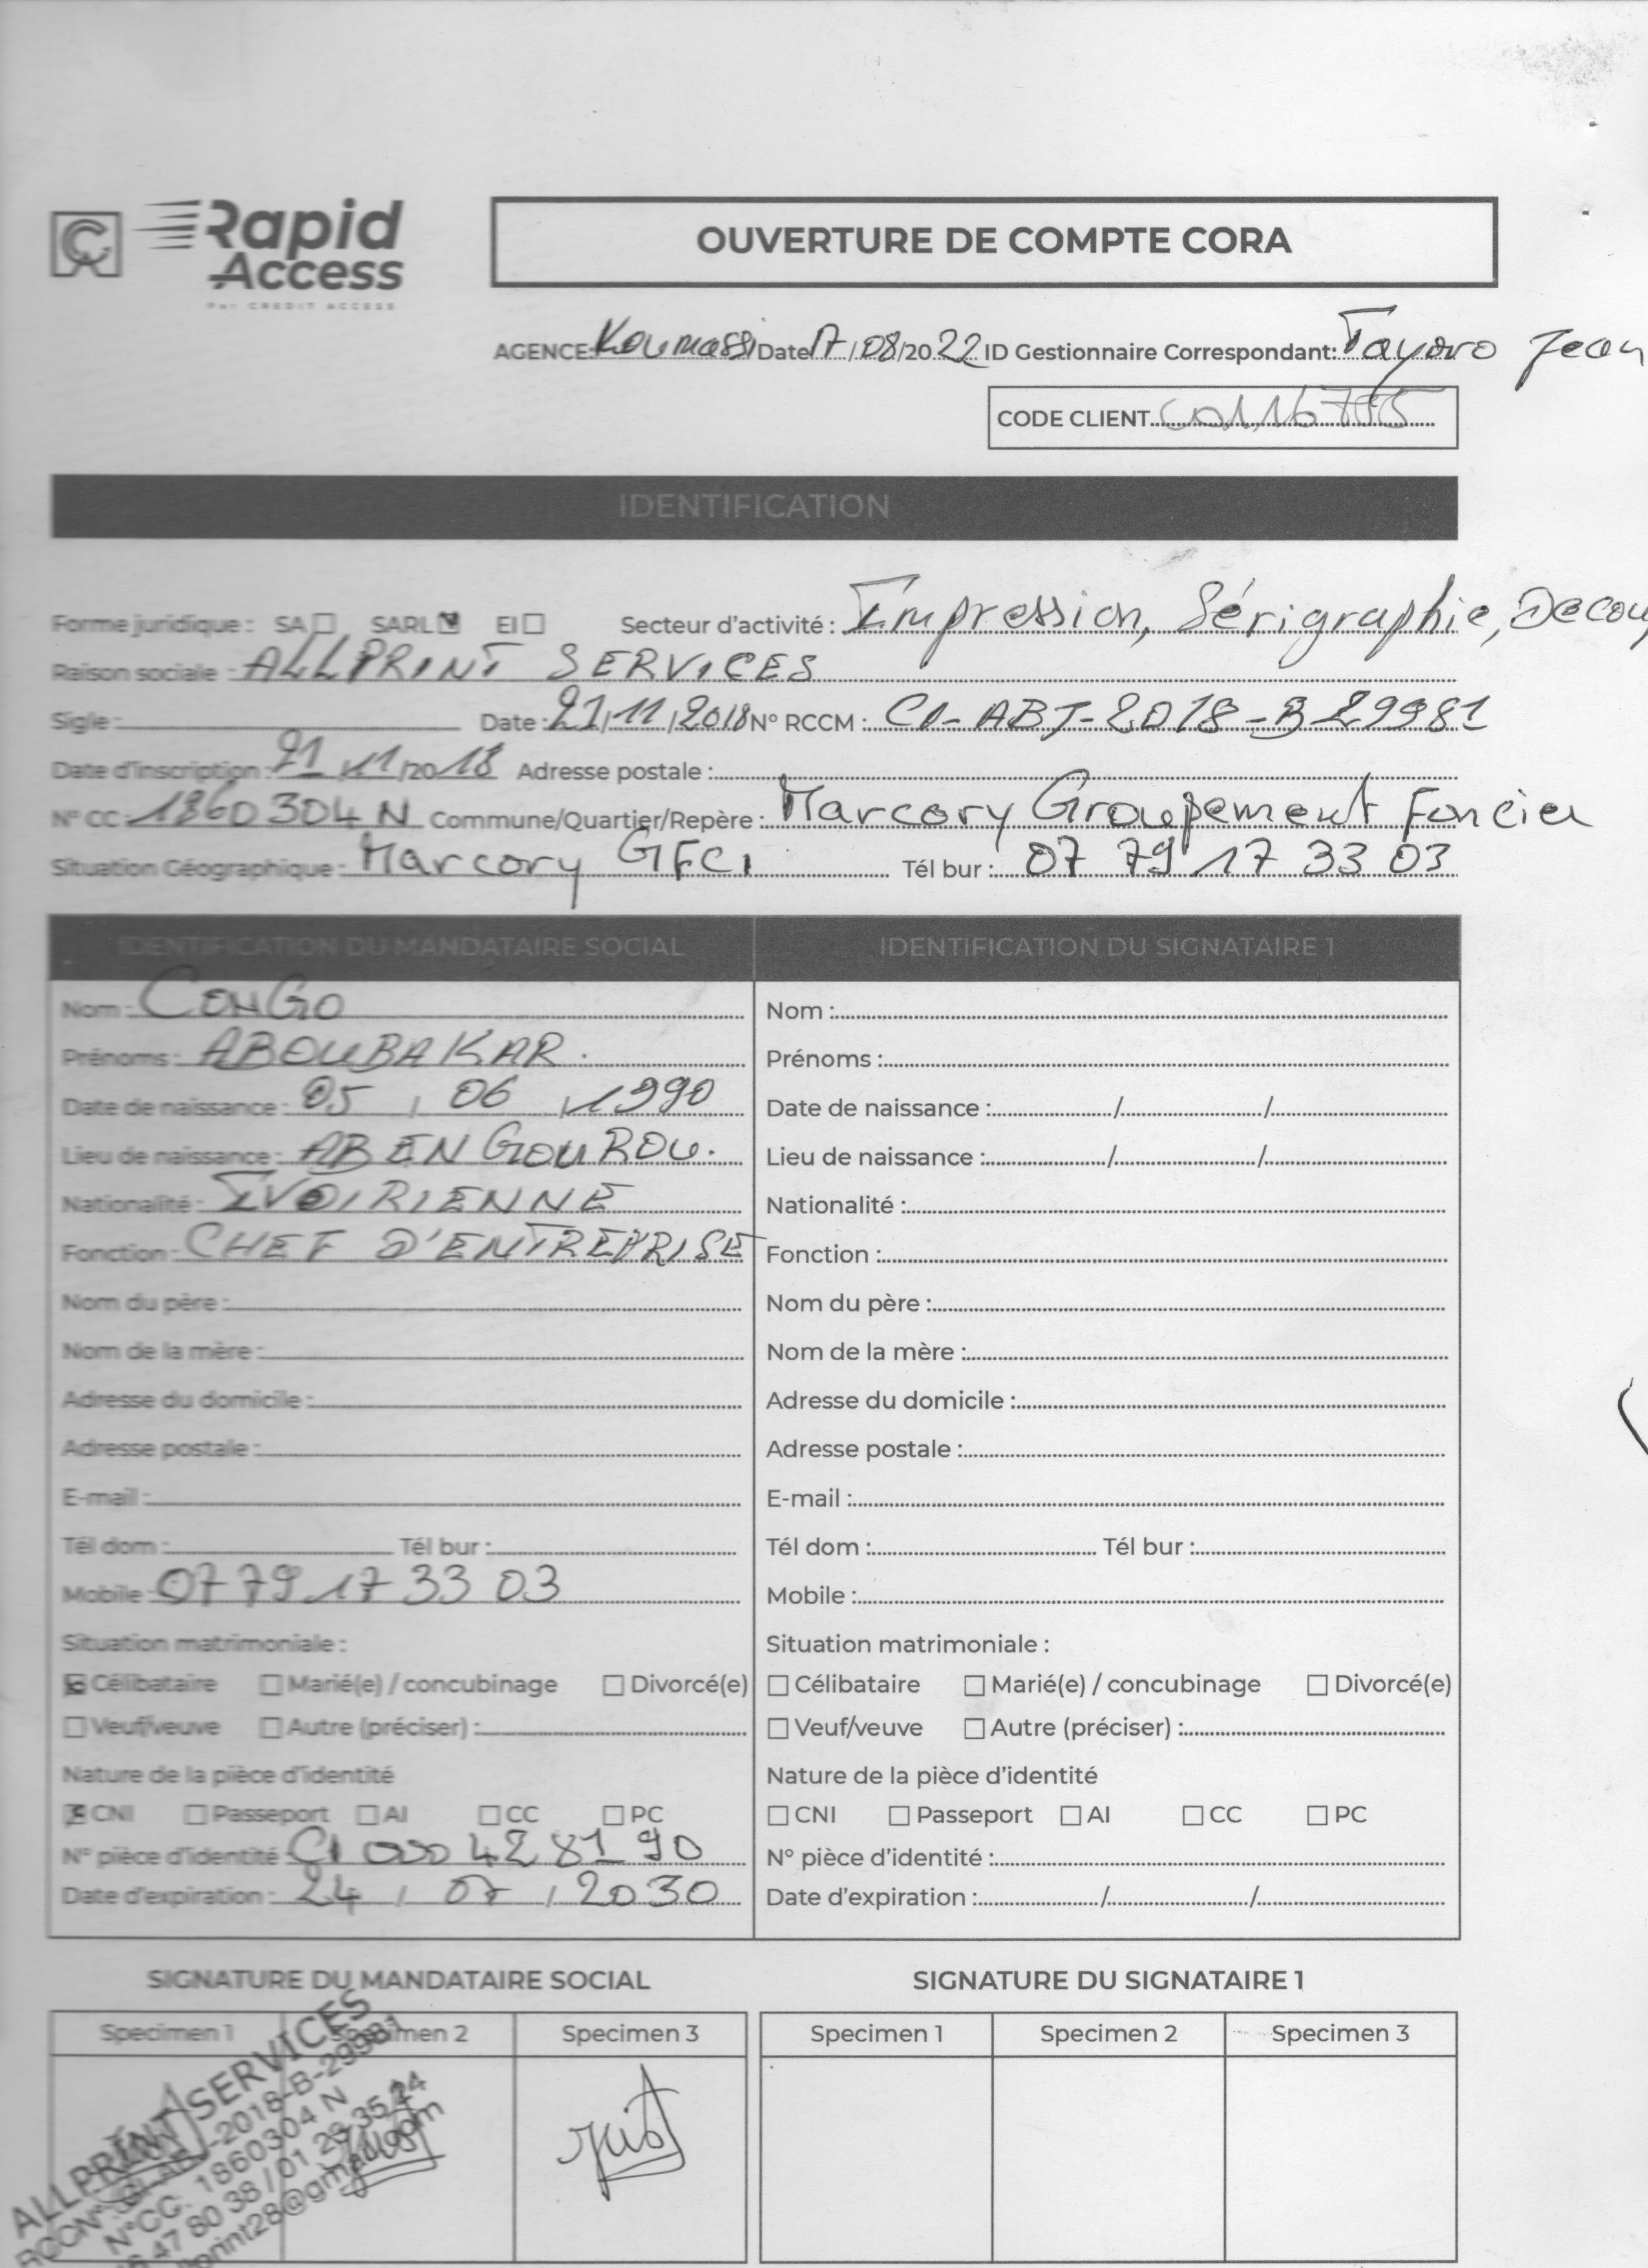 Rapid
Access
Par CREDIT ACCESS
OUVERTURE DE COMPTE CORA
AGENCE: Koumassi Date 17/08/2022 ID Gestionnaire Correspondant: Tayoro Jean
CODE CLIENT
IDENTIFICATION
Forme juridique : SA☐ SARL☑ EI☐ Secteur d'activité : Impression, Sérigraphie, Decou
Raison sociale : ALLPRINT SERVICES
Sigle : Date : 21/11/2018 N° RCCM : CI-ABJ-2018-B29981
Date d'inscription : 21/11/2018 Adresse postale :
N° CC : 1860304 N Commune/Quartier/Repère : Marcory Groupement Foncier
Situation Géographique : Marcory GFCI Tél bur : 07 79 17 33 03
IDENTIFICATION DU MANDATAIRE SOCIAL IDENTIFICATION DU SIGNATAIRE 1
Nom : CONGO Nom :
Prénoms : ABOUBAKAR. Prénoms :
Date de naissance : 05 / 06 / 1990 Date de naissance : / /
Lieu de naissance : ABENGOUROU. Lieu de naissance : / /
Nationalité : IVOIRIENNE Nationalité :
Fonction : CHEF D'ENTREPRISE Fonction :
Nom du père : Nom du père :
Nom de la mère : Nom de la mère :
Adresse du domicile : Adresse du domicile :
Adresse postale : Adresse postale :
E-mail : E-mail :
Tél dom : Tél bur : Tél dom : Tél bur :
Mobile : 07 79 17 33 03 Mobile :
Situation matrimoniale : Situation matrimoniale :
☑ Célibataire ☐ Marié(e) / concubinage ☐ Divorcé(e) ☐ Célibataire ☐ Marié(e) / concubinage ☐ Divorcé(e)
☐ Veuf/veuve ☐ Autre (préciser) : ☐ Veuf/veuve ☐ Autre (préciser) :
Nature de la pièce d'identité Nature de la pièce d'identité
☑ CNI ☐ Passeport ☐ AI ☐ CC ☐ PC ☐ CNI ☐ Passeport ☐ AI ☐ CC ☐ PC
N° pièce d'identité CI 000 42 81 90 N° pièce d'identité :
Date d'expiration : 24 / 07 / 2030 Date d'expiration : / /
SIGNATURE DU MANDATAIRE SOCIAL SIGNATURE DU SIGNATAIRE 1
Specimen 1 Specimen 2 Specimen 3 Specimen 1 Specimen 2 Specimen 3
ALLPRINT SERVICES
2018-B-29981
N°CC. 1860304 N
47 80 38 / 01 29 35 24
print28@gmail.com